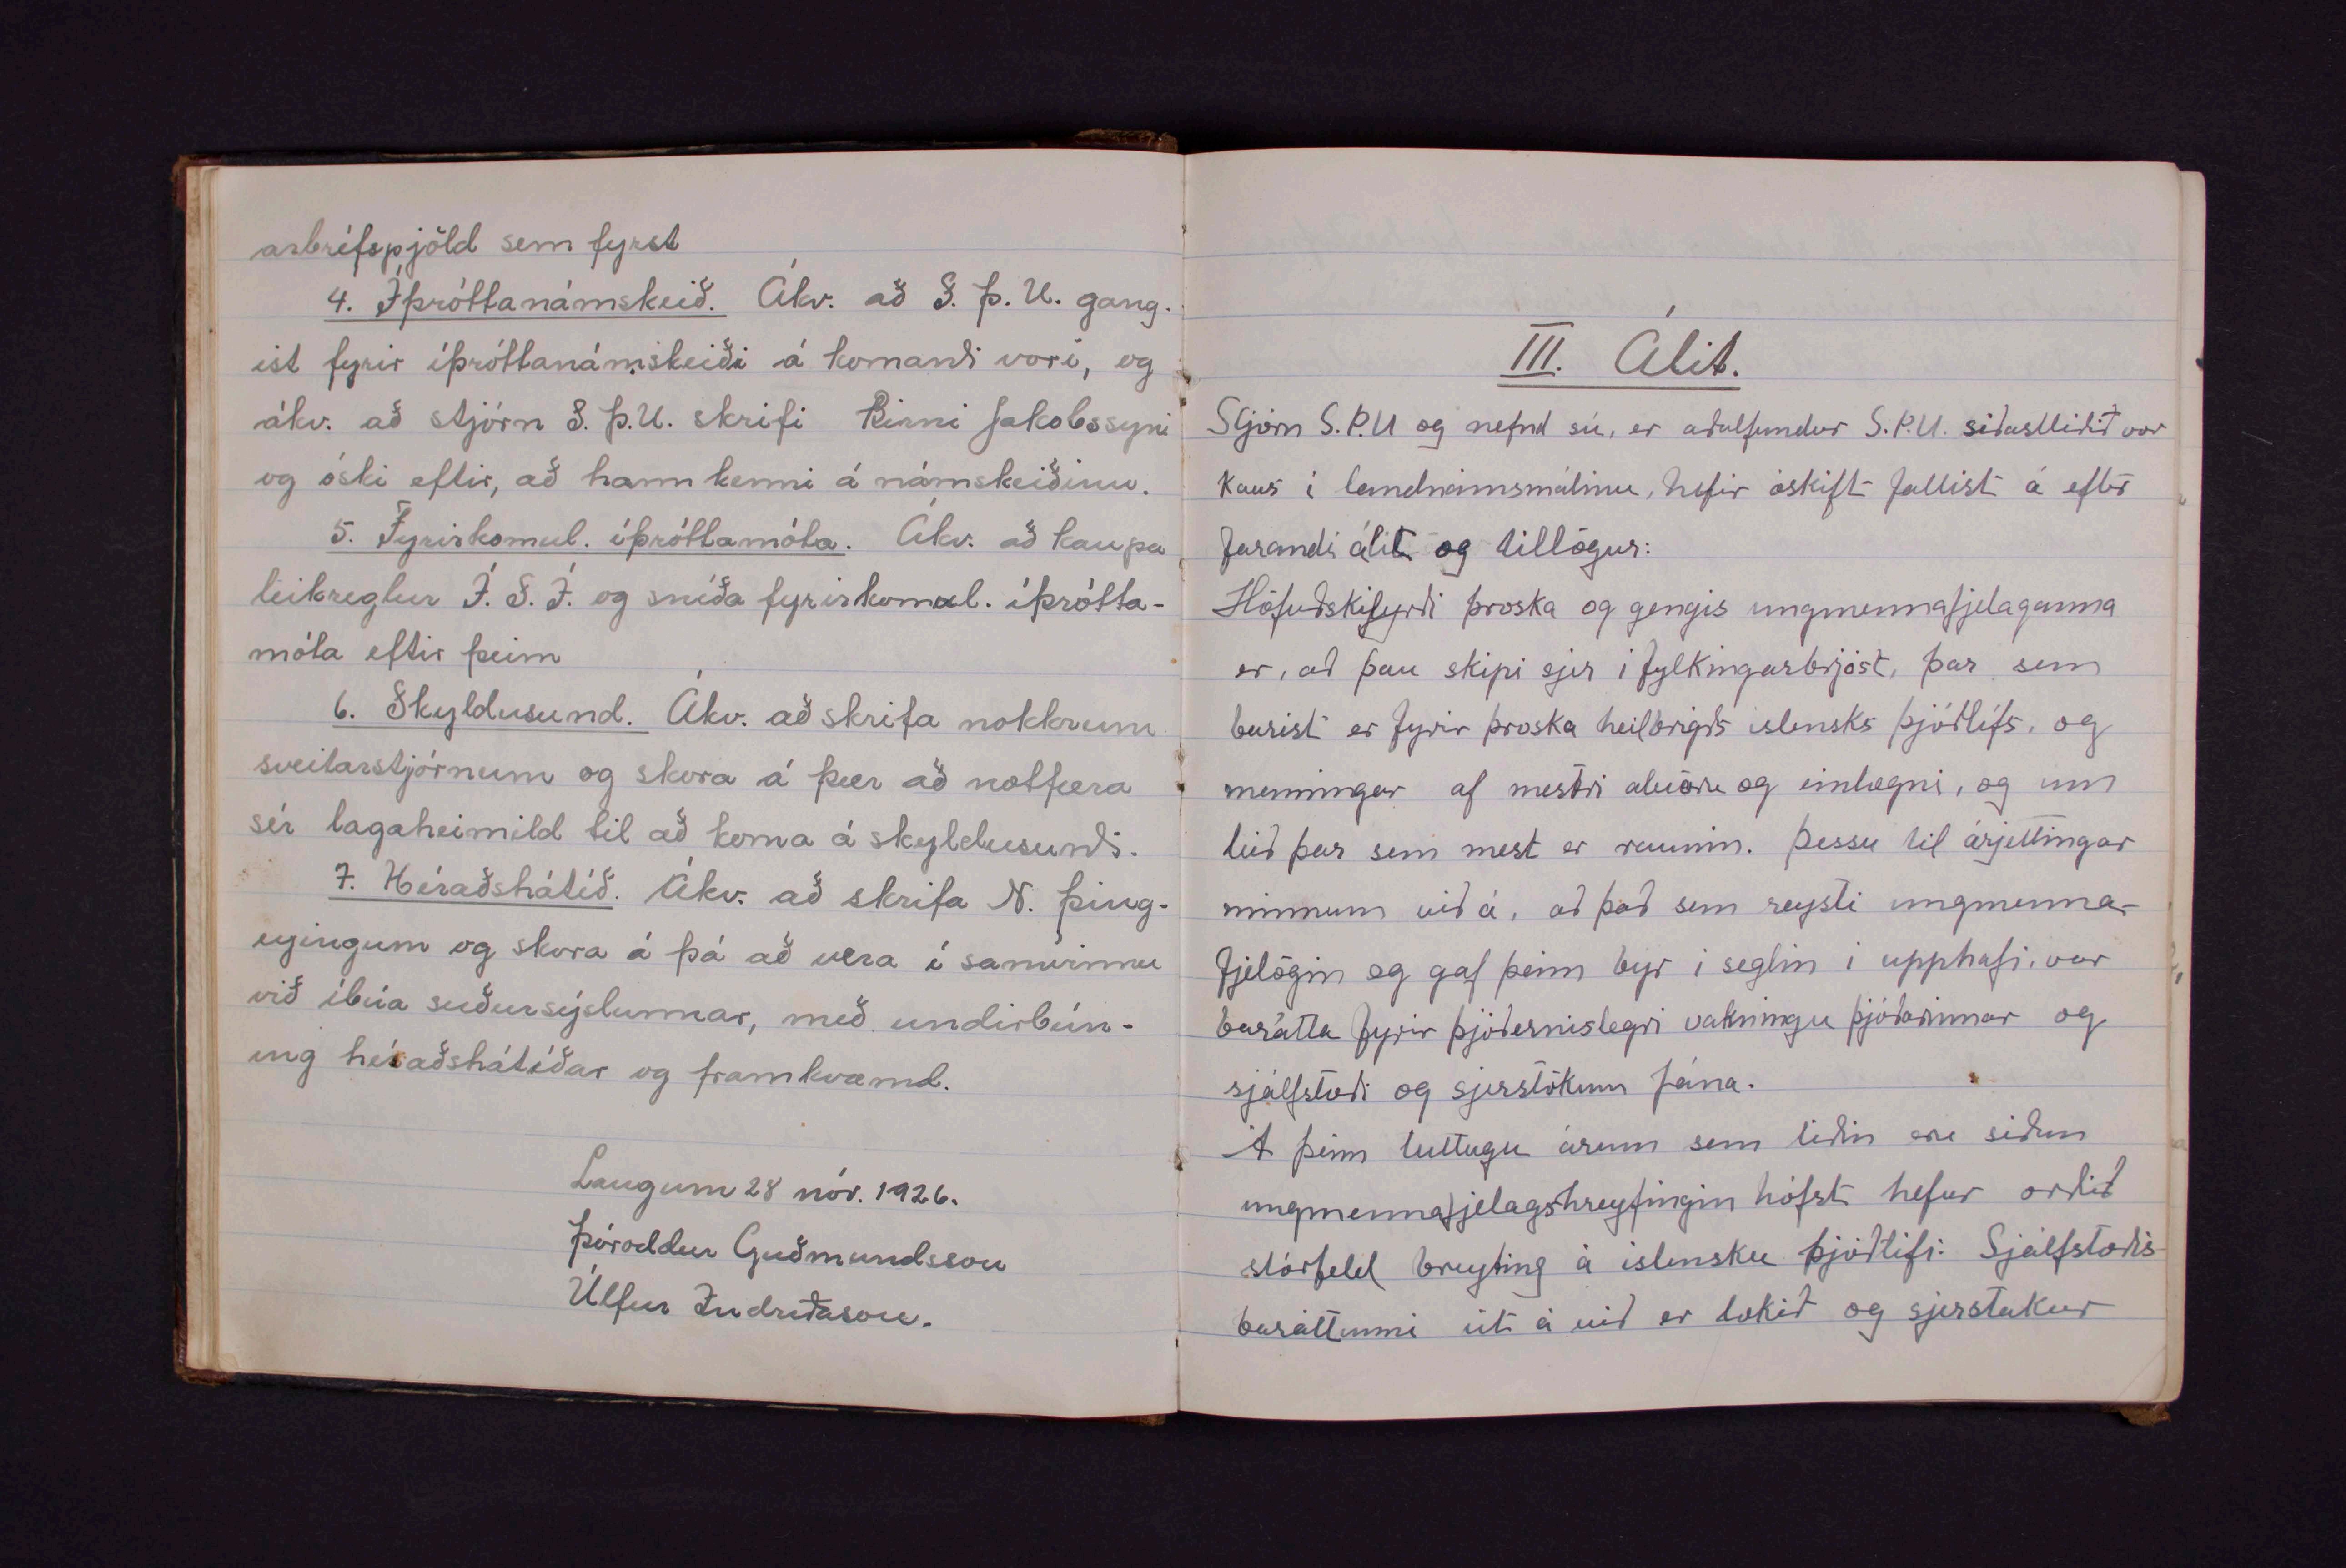 arbréfspjöld sem fyrst
4. Íþróttanámskeið. Ákv. að S. Þ. U. gang-
ist fyrir íþróttanámskeiði á komandi vori, og
ákv. að stjórn S. Þ. U. skrifi Birni Jakobssyni
og óski eftir, að hann kenni á námskeiðinu.
5. Fyrirkomul. íþróttamóta. Ákv. að kaupa
leikreglur Í. S. Í. og sníða fyrirkomul. íþrótta-
móta eftir þeim
6. Skyldusund. Ákv. að skrifa nokkrum
sveitarstjórnum og skora á þær að notfæra
sér lagaheimild til að koma á skyldusundi.
7. Héraðshátíð. Ákv. að skrifa N. Þing-
eyingum og skora á þá að vera í samvinnu
við íbúa suðursýslunnar, með undirbún-
ing héraðshátíðar og framkvæmd.
Laugum 28 nóv. 1926.
Þóroddur Guðmundsson
Úlfur Indriðason.
III. Álit.
Stjórn S.Þ.U og nefnd sú, er aðalfundur S.Þ.U. síðastliðið vor
kaus í landnámsmálinu, hefir óskift fallist á eftir
farandi álit og tillögur:
Höfuðskilyrði þroska og gengis ungmennafjelaganna
er, að þau skipi sjer í fylkingarbrjóst, þar sem
barist er fyrir þroska heilbrigðs íslensks þjóðlífs, og
menningar af mestri alvöru og einlægni, og um
leið þar sem mest er raunin. Þessu til árjettingar
minnum við á, að það sem reysti ungmenna-
fjelögin og gaf þeim byr í seglin í upphafi, var
barátta fyrir þjóðernislegri vakningu þjóðarinnar og
sjálfstæði og sjerstökum fána.
Á þeim tuttugu árum sem liðin eru síðan
ungmennafjelagshreyfingin hófst hefur orðið
stórfeld breyting á íslensku þjóðlífi: Sjálfstæðis
baráttunni út á við er lokið og sjerstakur